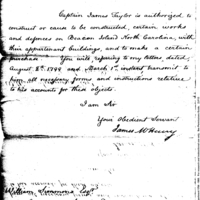 Captain James Taylor is authorized to
construct or cause to be constructed, certain works
and defences on Beacon Island North Carolina, with
their appurtenant buildings, and to make a certain
purchase. You will, referring to my letters, dated,
August 8th 1799 and March 1st instant transmit to
him all necessary forms and instructions relative
to his accounts for these objects.
I am Sir
Your obedient Servant
James McHenry
William Simmons Esqr